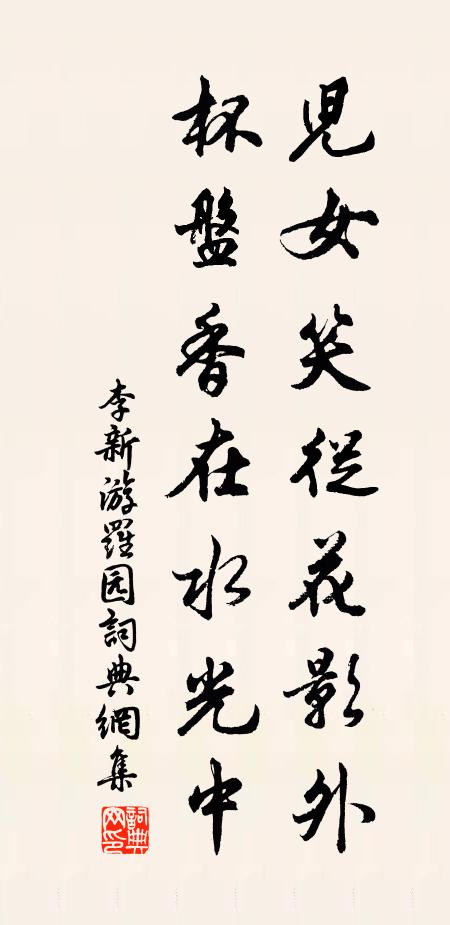 兒女笑從花影外
杯盤香在水光中
李新游羅园詞典網集
詞典网印